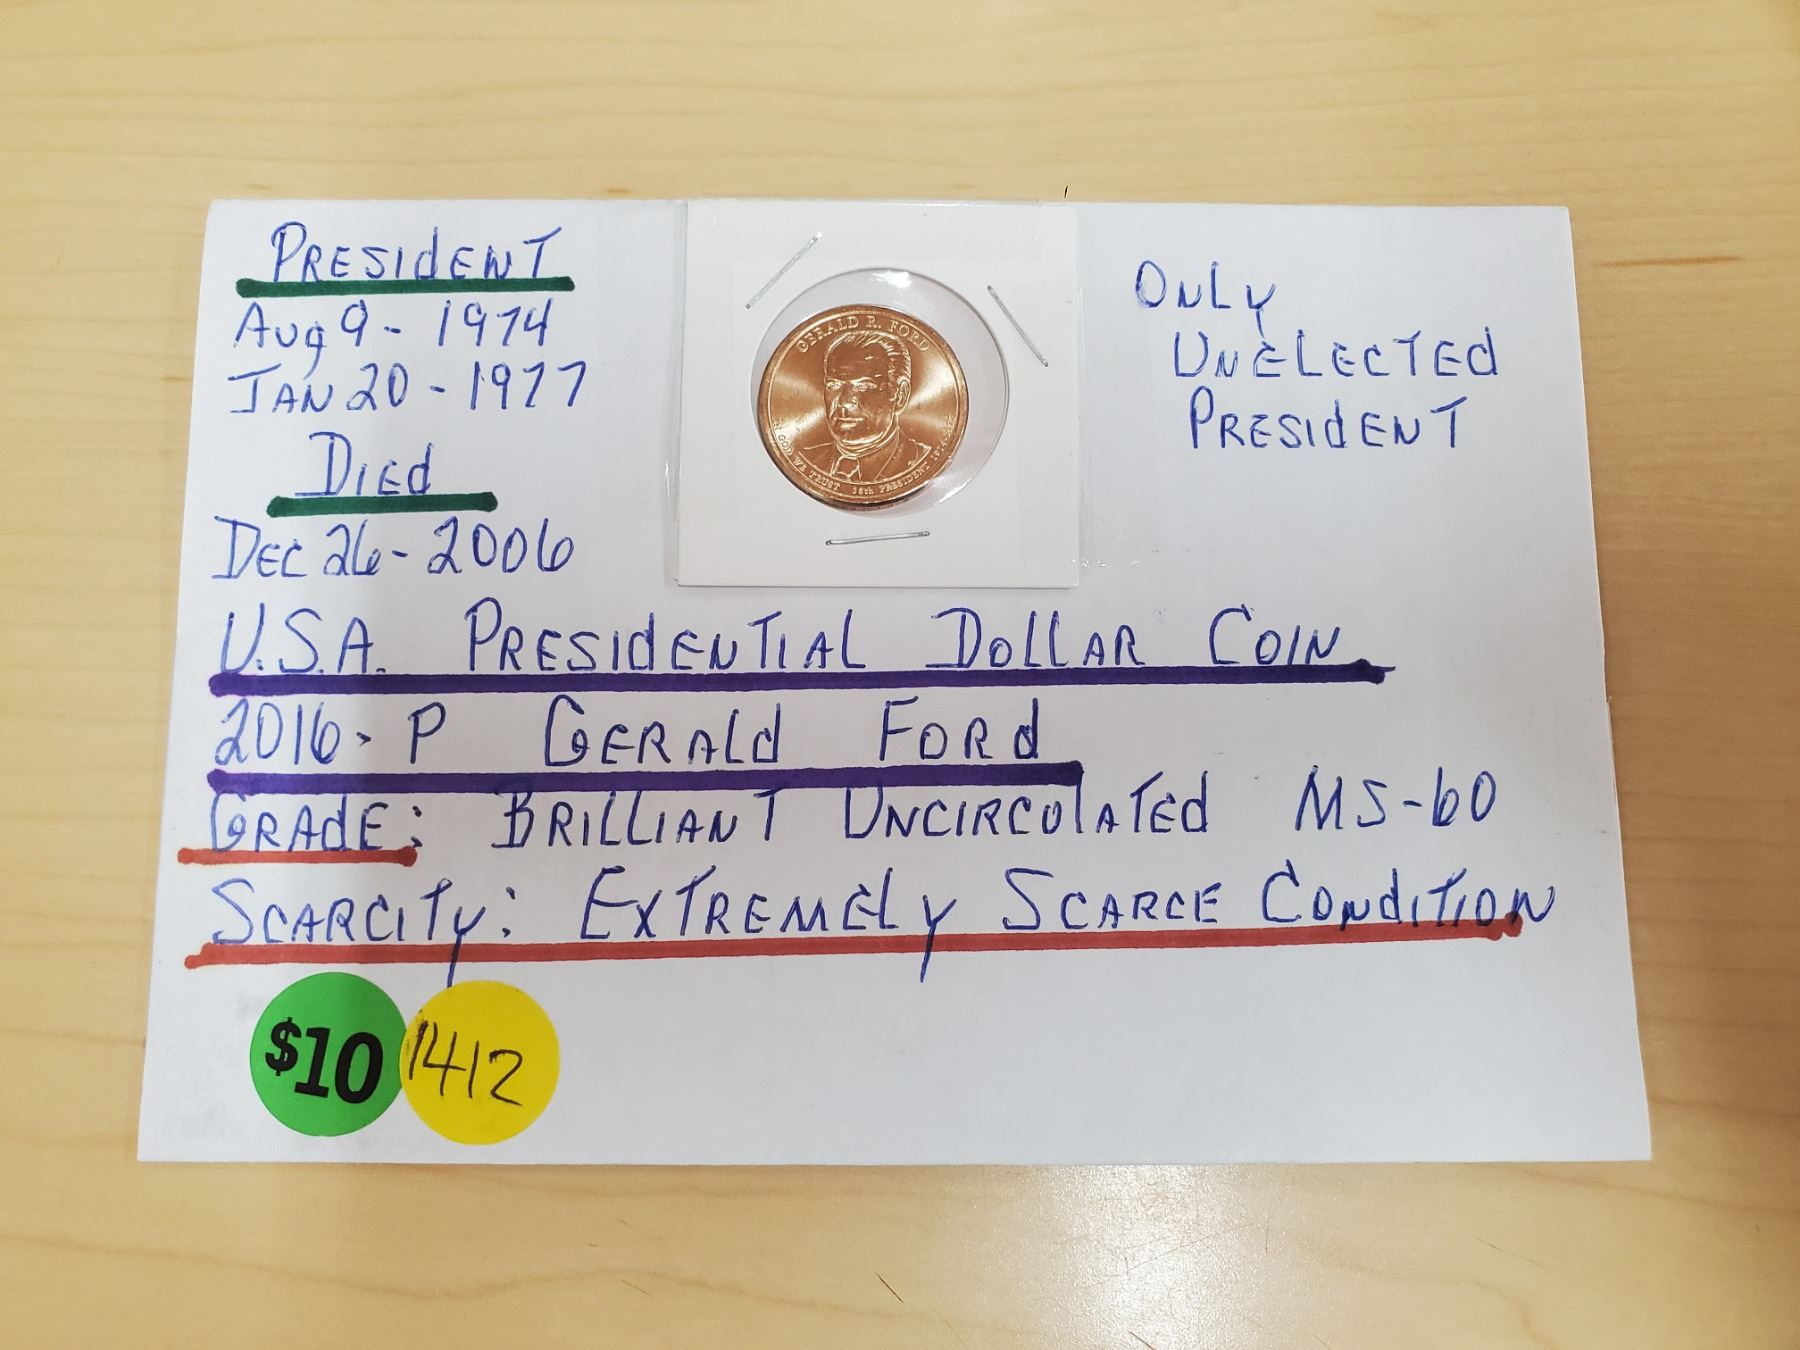 PRESIdENT
Aug 9 - 1974
JAN 20 - 1977
DIEd
DEC 26 - 2006
ONLY
UNELECTEd
PRESIdENT
GERALD R. FORD
IN GOD WE TRUST 38th PRESIDENT 1974-1977
U.S.A. PRESIdENTIAL DOLLAR COIN
2016-P GERALd FORd
GRAdE: BRILLIANT UNCIRCULATEd MS-60
SCARCITY: EXTREMELY SCARCE CONdITION
$10 1412